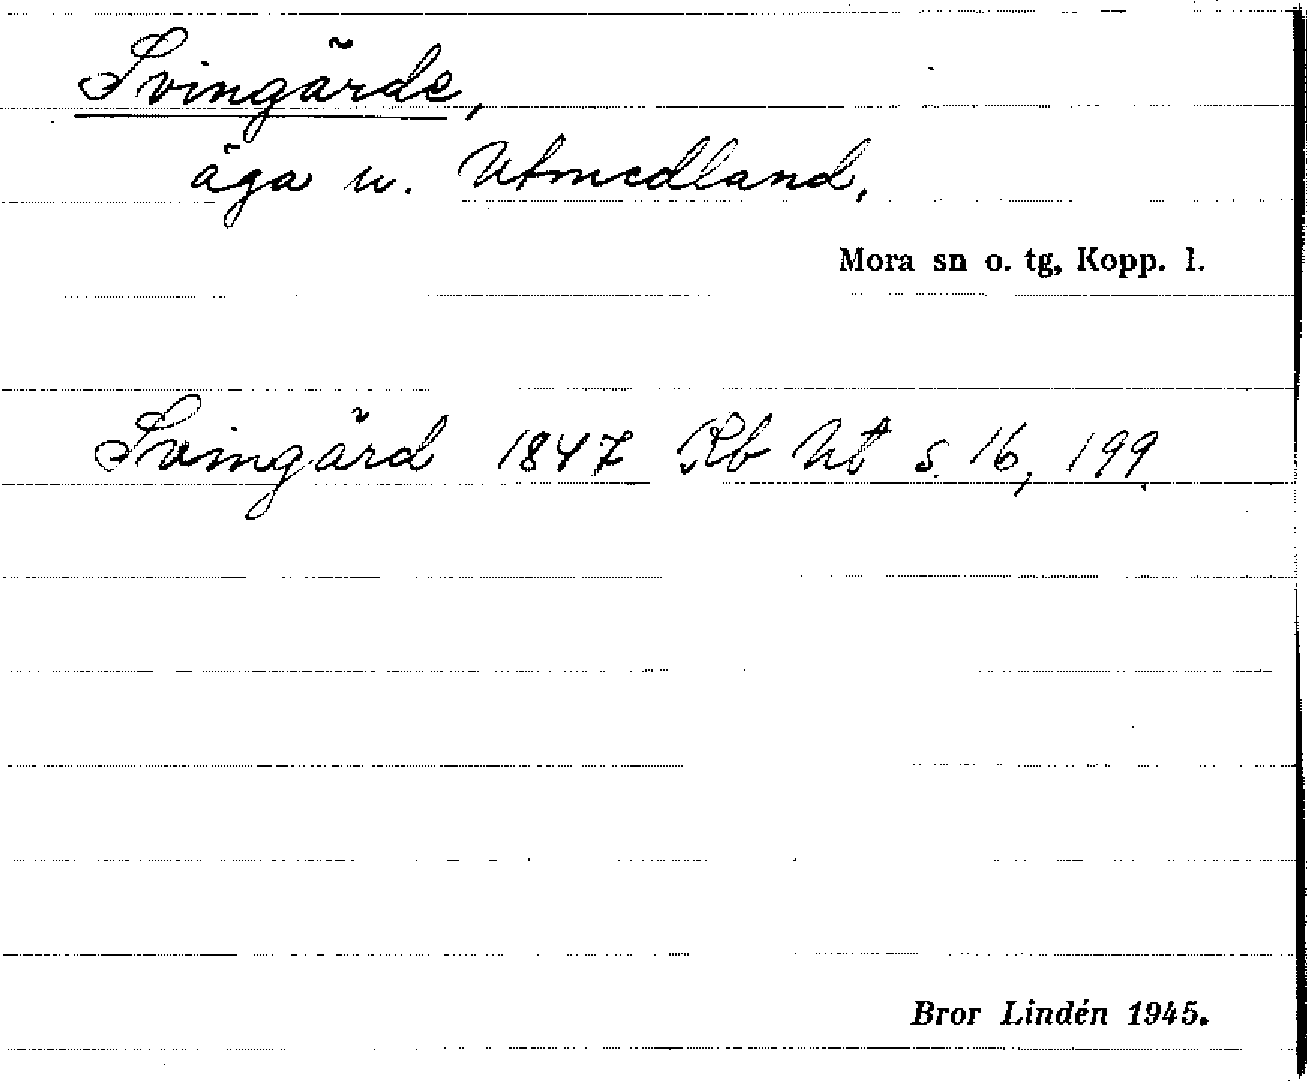 Svingärde,
äga u. Utmedland,
Mora sn o. tg, Kopp. l.
Svingärd 1847 Rb Ut s. 16, 199.
Bror Lindén 1945.